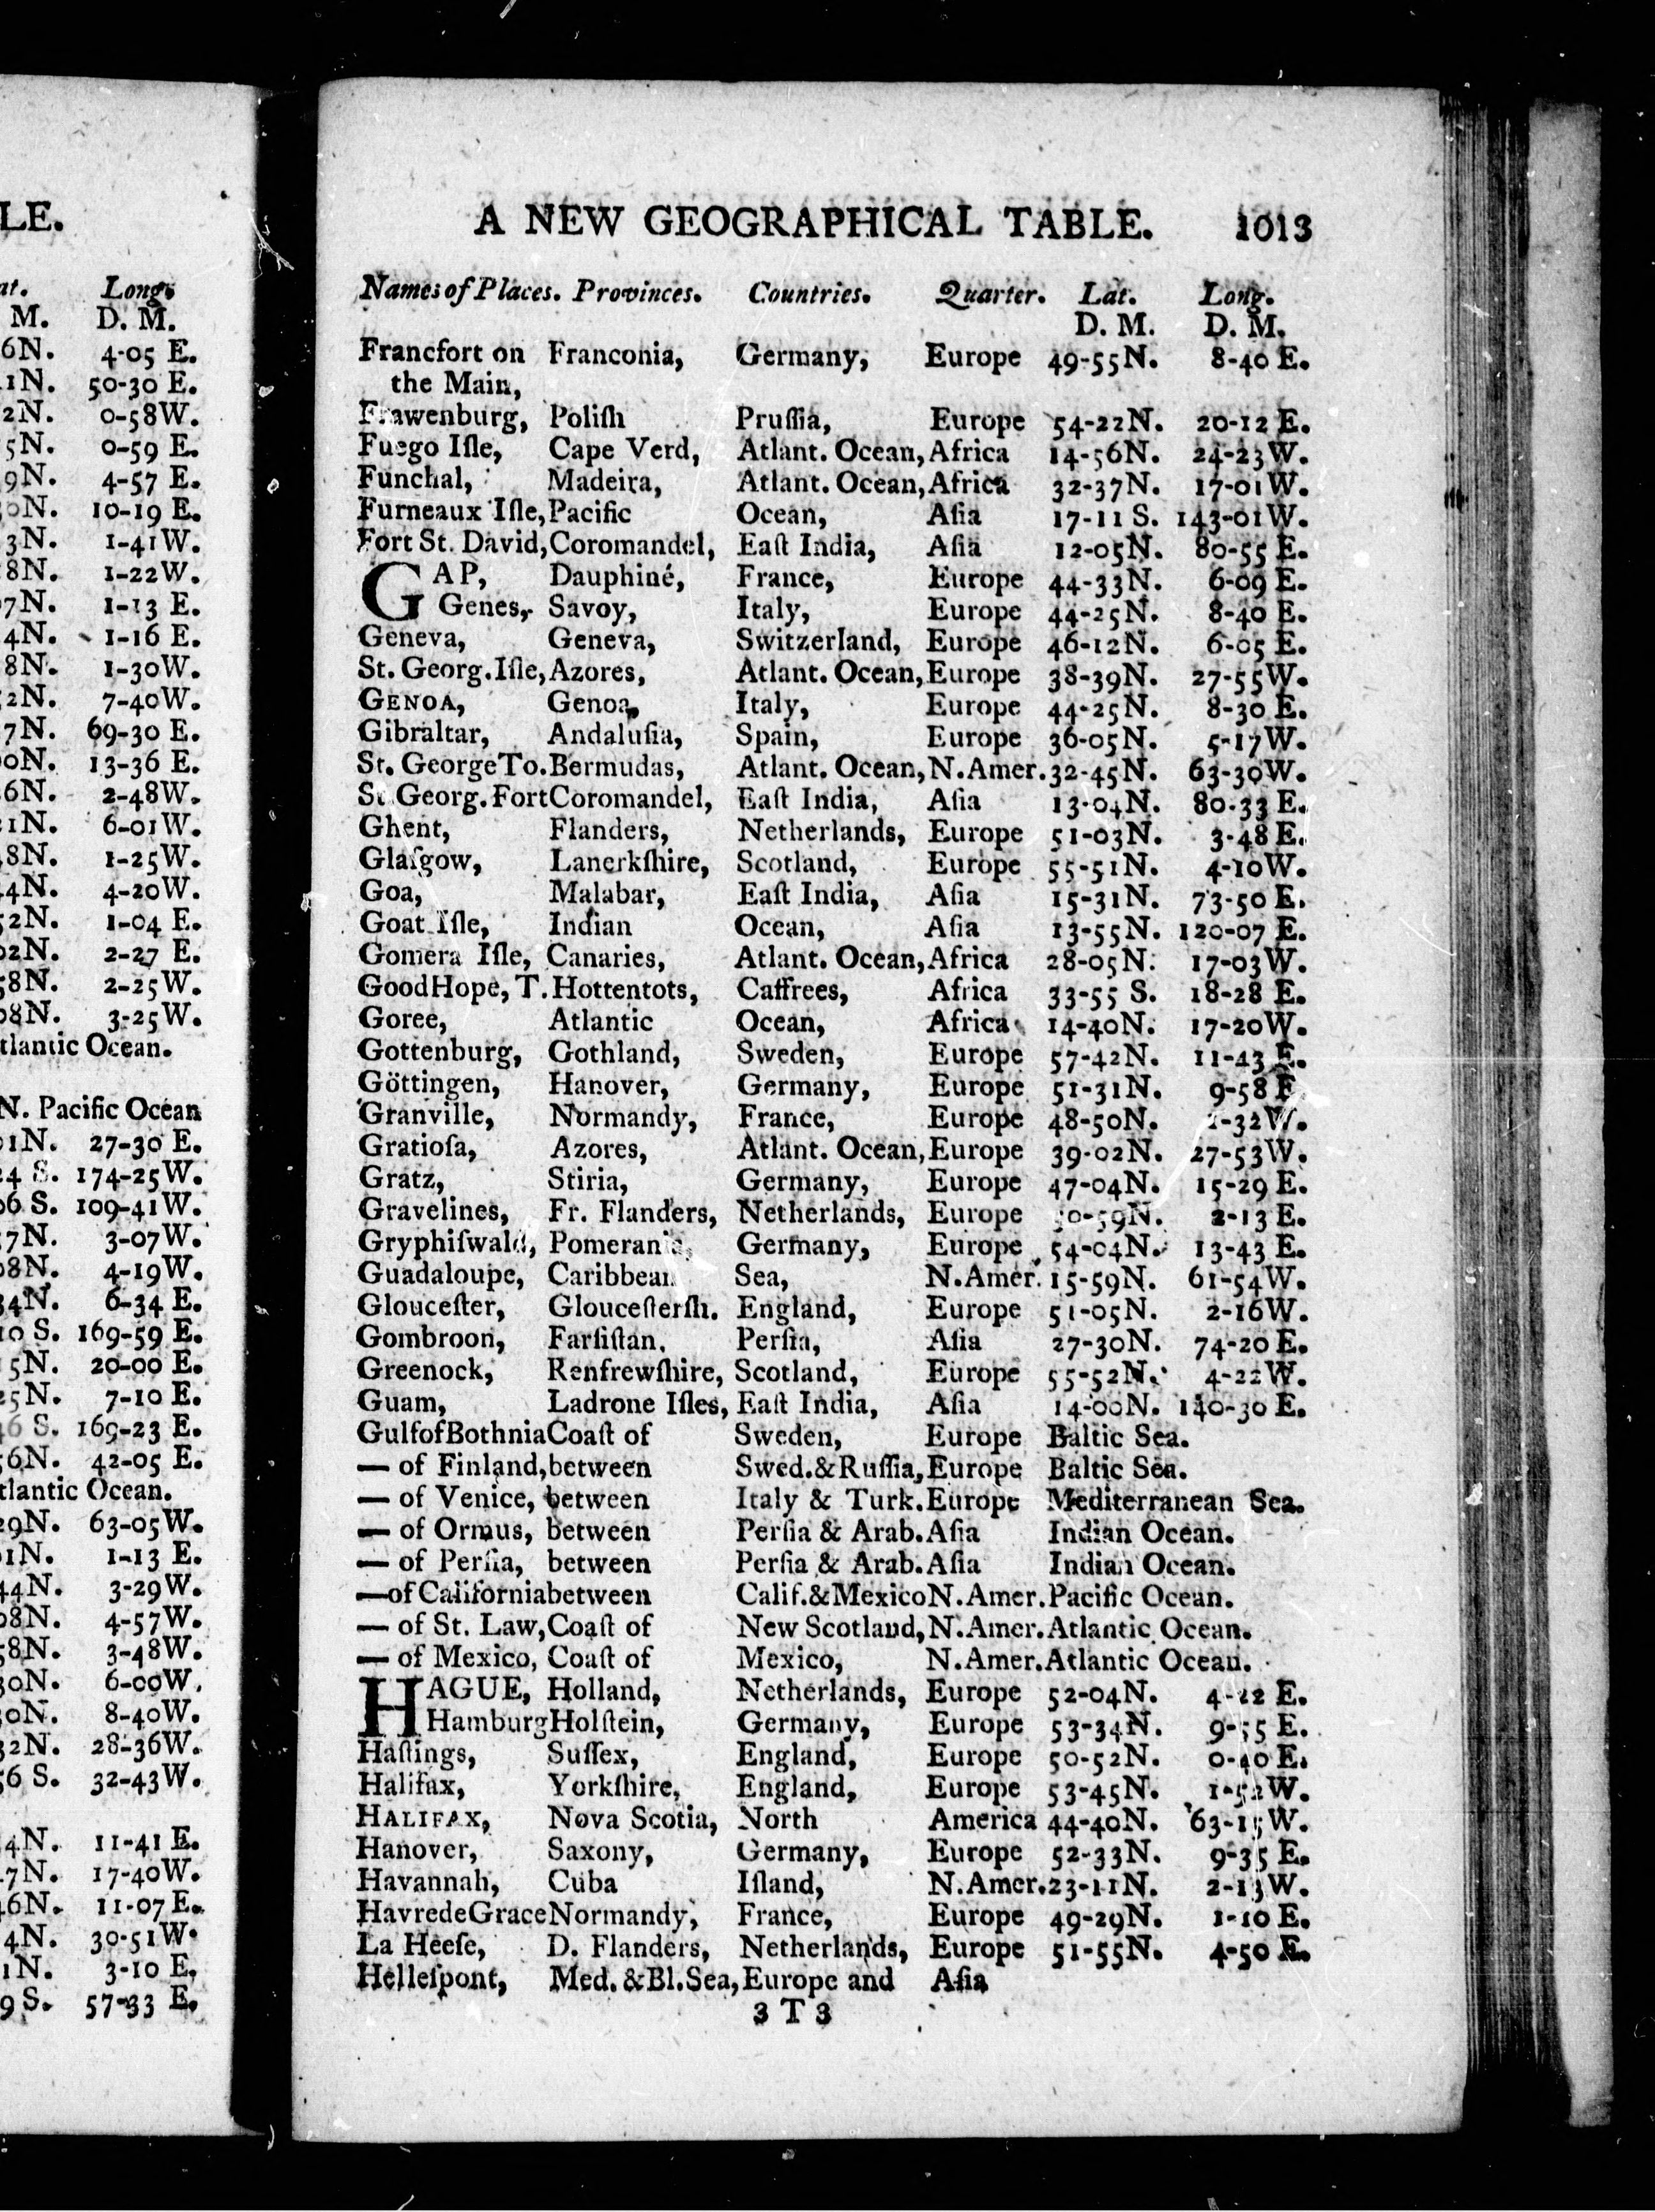 LE.
at. Long.
M. D. M.
6N. 4-05 E.
1N. 50-30 E.
2N. 0-58W.
5N. 0-59 E.
9N. 4-57 E.
0N. 10-19 E.
3N. 1-41W.
8N. 1-22W.
7N. 1-13 E.
4N. 1-16 E.
8N. 1-30W.
2N. 7-40W.
7N. 69-30 E.
0N. 13-36 E.
6N. 2-48W.
1N. 6-01W.
8N. 1-25W.
4N. 4-20W.
52N. 1-04 E.
02N. 2-27 E.
58N. 2-25W.
08N. 3-25W.
tlantic Ocean.
N. Pacific Ocean
01N. 27-30 E.
24 S. 174-25W.
06 S. 109-41W.
7N. 3-07W.
08N. 4-19W.
34N. 6-34 E.
10 S. 169-59 E.
5N. 20-00 E.
25N. 7-10 E.
46 S. 169-23 E.
56N. 42-05 E.
tlantic Ocean.
29N. 63-05W.
1N. 1-13 E.
44N. 3-29W.
08N. 4-57W.
58N. 3-48W.
30N. 6-00W.
0N. 8-40W.
32N. 28-36W.
56 S. 32-43W.
4N. 11-41 E.
7N. 17-40W.
46N. 11-07 E.
4N. 30-51W.
1N. 3-10 E.
9 S. 57-33 E.
A NEW GEOGRAPHICAL TABLE. 1013
Names of Places. Provinces. Countries. Quarter. Lat. Long.
D. M. D. M.
Francfort on Franconia, Germany, Europe 49-55N. 8-40 E.
the Main,
Frawenburg, Poliſh Pruſſia, Europe 54-22N. 20-12 E.
Fuego Iſle, Cape Verd, Atlant. Ocean, Africa 14-56N. 24-23W.
Funchal, Madeira, Atlant. Ocean, Africa 32-37N. 17-01W.
Furneaux Iſle, Pacific Ocean, Aſia 17-11 S. 143-01W.
Fort St. David, Coromandel, Eaſt India, Aſia 12-05N. 80-55 E.
GAP, Dauphiné, France, Europe 44-33N. 6-09 E.
Genes, Savoy, Italy, Europe 44-25N. 8-40 E.
Geneva, Geneva, Switzerland, Europe 46-12N. 6-05 E.
St. Georg. Iſle, Azores, Atlant. Ocean, Europe 38-39N. 27-55W.
GENOA, Genoa, Italy, Europe 44-25N. 8-30 E.
Gibraltar, Andaluſia, Spain, Europe 36-05N. 5-17W.
St. George To. Bermudas, Atlant. Ocean, N. Amer. 32-45N. 63-30W.
St Georg. Fort Coromandel, Eaſt India, Aſia 13-04N. 80-33 E.
Ghent, Flanders, Netherlands, Europe 51-03N. 3-48 E.
Glaſgow, Lanerkſhire, Scotland, Europe 55-51N. 4-10W.
Goa, Malabar, Eaſt India, Aſia 15-31N. 73-50 E.
Goat Iſle, Indian Ocean, Aſia 13-55N. 120-07 E.
Gomera Iſle, Canaries, Atlant. Ocean, Africa 28-05N. 17-03W.
Good Hope, T. Hottentots, Caffrees, Africa 33-55 S. 18-28 E.
Goree, Atlantic Ocean, Africa 14-40N. 17-20W.
Gottenburg, Gothland, Sweden, Europe 57-42N. 11-43 E.
Göttingen, Hanover, Germany, Europe 51-31N. 9-58 E
Granville, Normandy, France, Europe 48-50N. 1-32W.
Gratioſa, Azores, Atlant. Ocean, Europe 39-02N. 27-53W.
Gratz, Stiria, Germany, Europe 47-04N. 15-29 E.
Gravelines, Fr. Flanders, Netherlands, Europe 50-59N. 2-13 E.
Gryphiſwald, Pomerania, Germany, Europe 54-04N. 13-43 E.
Guadaloupe, Caribbean Sea, N. Amer. 15-59N. 61-54W.
Glouceſter, Glouceſterſh. England, Europe 51-05N. 2-16W.
Gombroon, Farſiſtan, Perſia, Aſia 27-30N. 74-20 E.
Greenock, Renfrewſhire, Scotland, Europe 55-52N. 4-22W.
Guam, Ladrone Iſles, Eaſt India, Aſia 14-00N. 140-30 E.
Gulf of Bothnia Coaſt of Sweden, Europe Baltic Sea.
— of Finland, between Swed. & Ruſſia, Europe Baltic Sea.
— of Venice, between Italy & Turk. Europe Mediterranean Sea.
— of Ormus, between Perſia & Arab. Aſia Indian Ocean.
— of Perſia, between Perſia & Arab. Aſia Indian Ocean.
— of California between Calif. & Mexico N. Amer. Pacific Ocean.
— of St. Law, Coaſt of New Scotland, N. Amer. Atlantic Ocean.
— of Mexico, Coaſt of Mexico, N. Amer. Atlantic Ocean.
HAGUE, Holland, Netherlands, Europe 52-04N. 4-22 E.
Hamburg Holſtein, Germany, Europe 53-34N. 9-55 E.
Haſtings, Suſſex, England, Europe 50-52N. 0-40 E.
Halifax, Yorkſhire, England, Europe 53-45N. 1-52W.
HALIFAX, Nova Scotia, North America 44-40N. 63-15W.
Hanover, Saxony, Germany, Europe 52-33N. 9-35 E.
Havannah, Cuba Iſland, N. Amer. 23-11N. 2-13W.
Havre de Grace Normandy, France, Europe 49-29N. 1-10 E.
La Heeſe, D. Flanders, Netherlands, Europe 51-55N. 4-50 E.
Helleſpont, Med. & Bl. Sea, Europe and Aſia
3 T 3